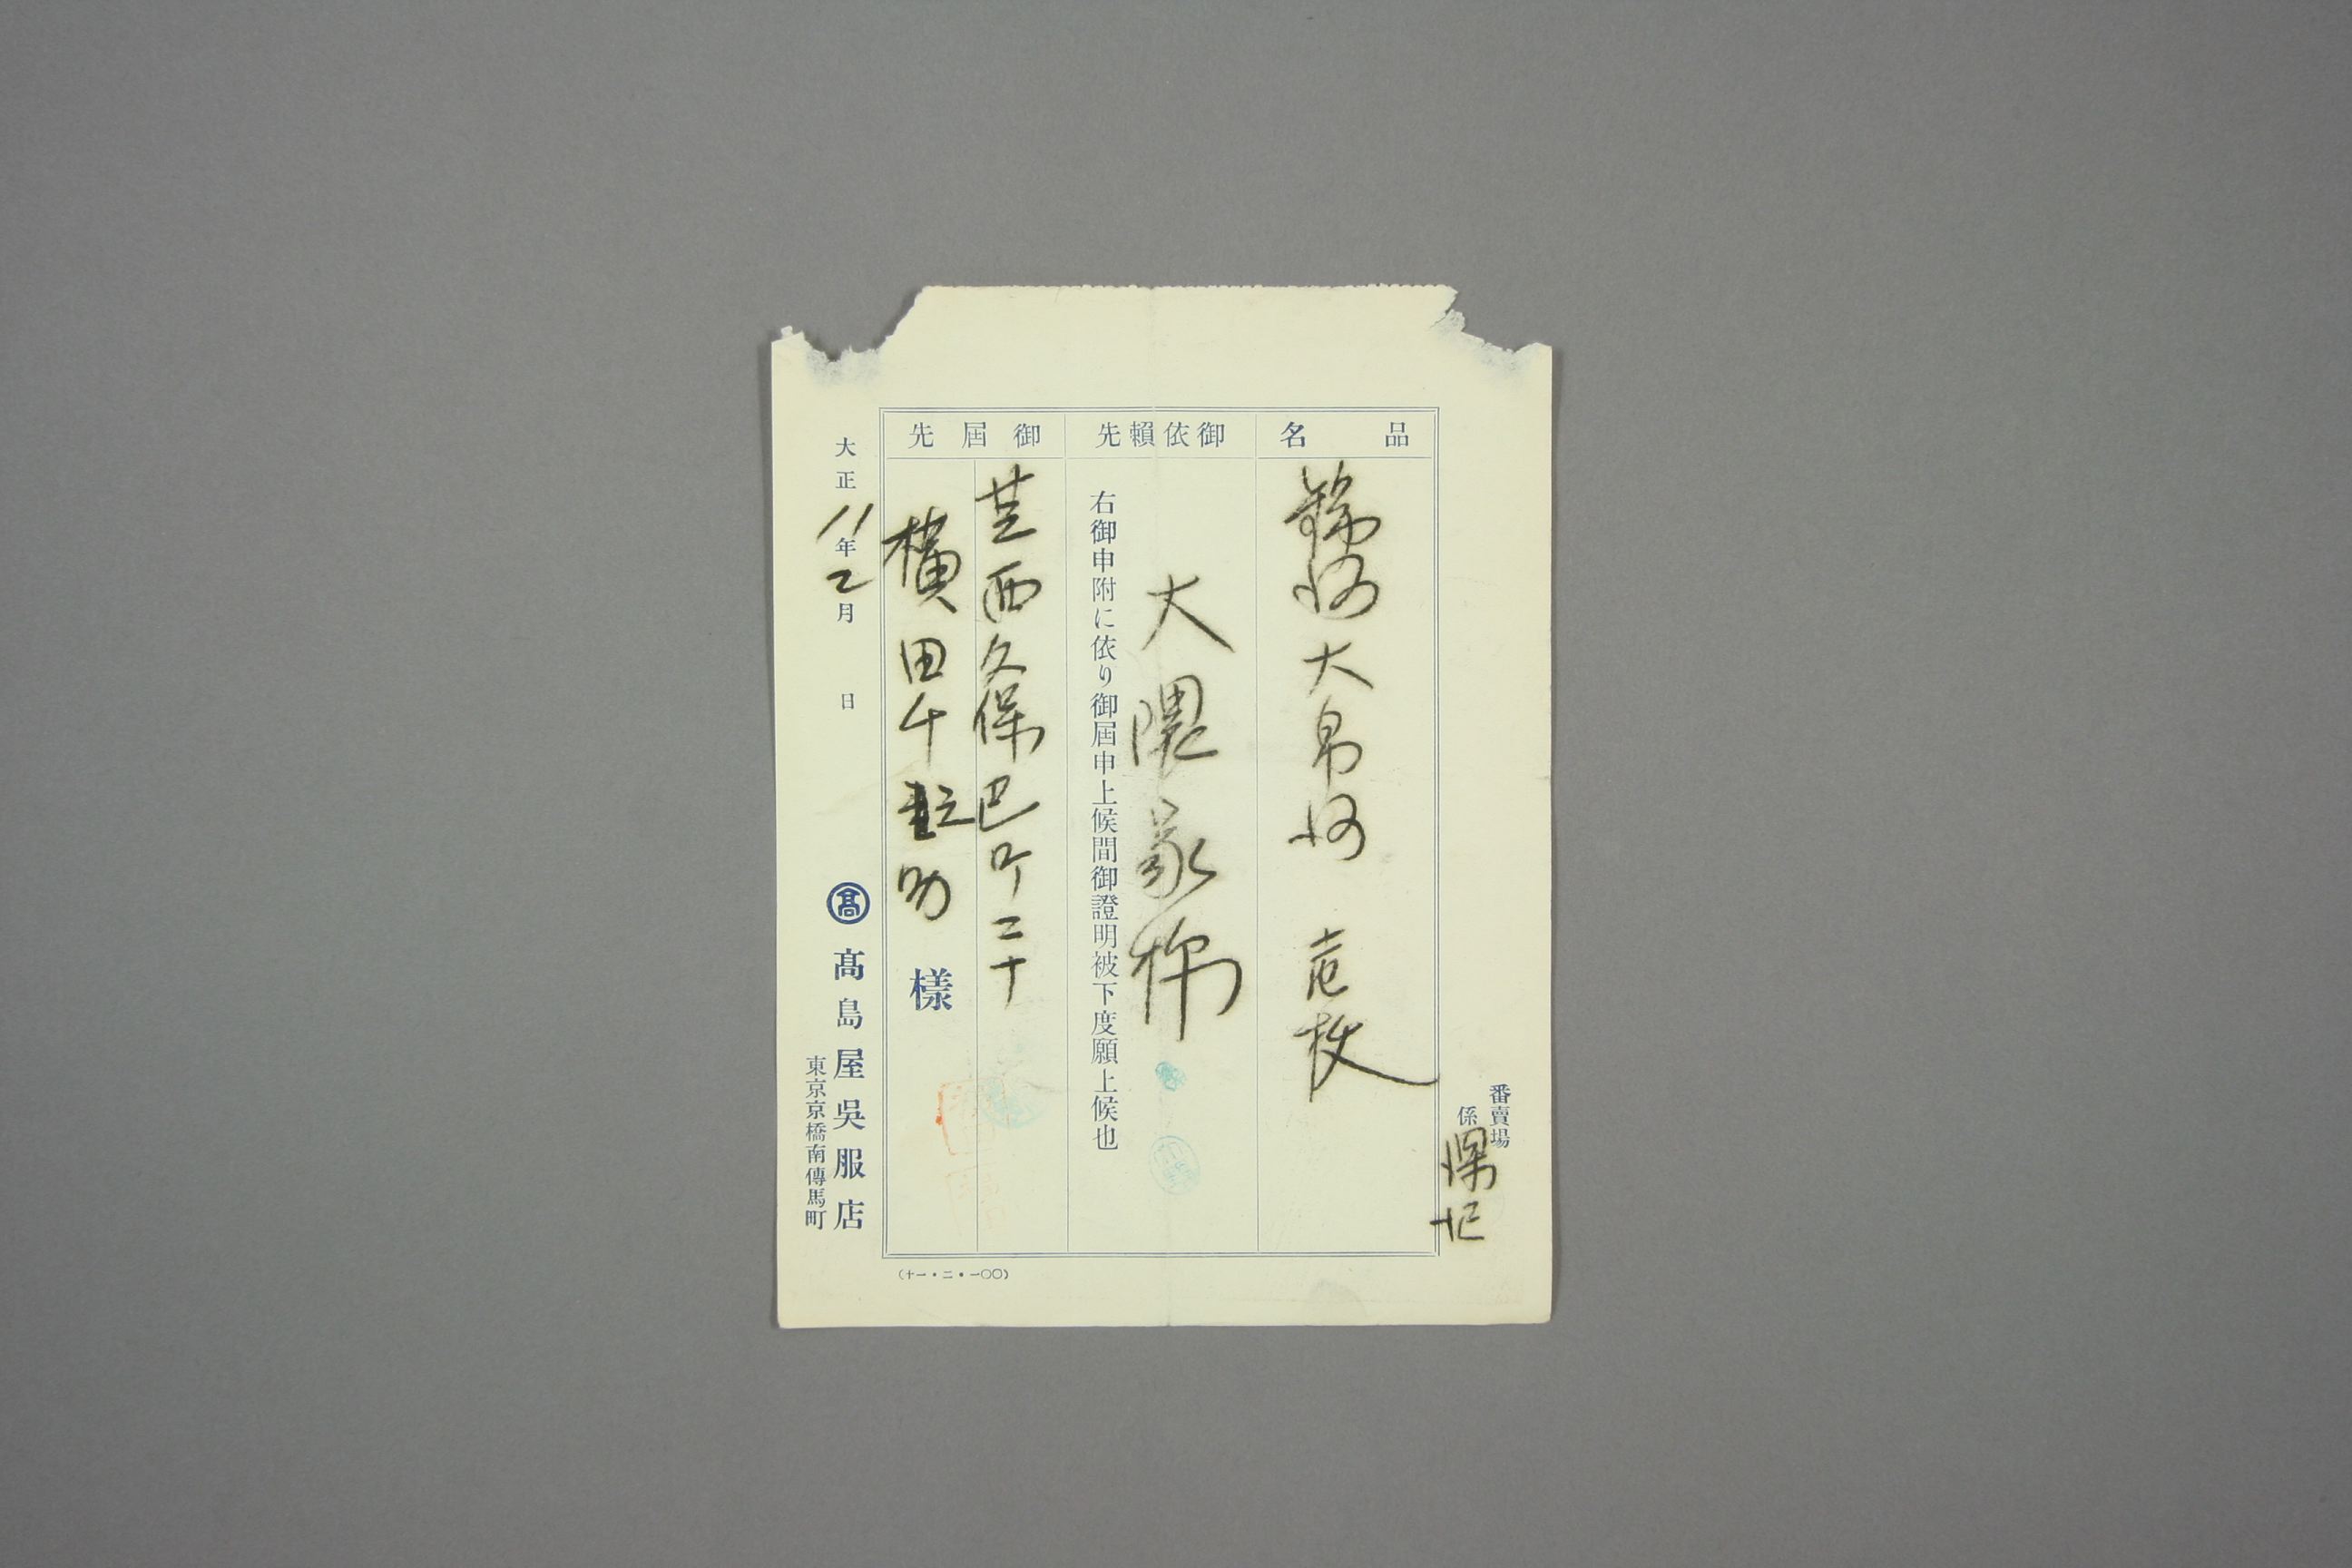 番賣場
係
品名
大帛紗 壱枚
御依賴先
大隈家
右御申附に依り御屆申上候間御證明被下度願上候也
御屆先
芝西久保巴町二十
橫田千 助 樣
大正11年2月 日
髙 髙島屋吳服店
東京京橋南傳馬町
(十一・二・一〇〇)